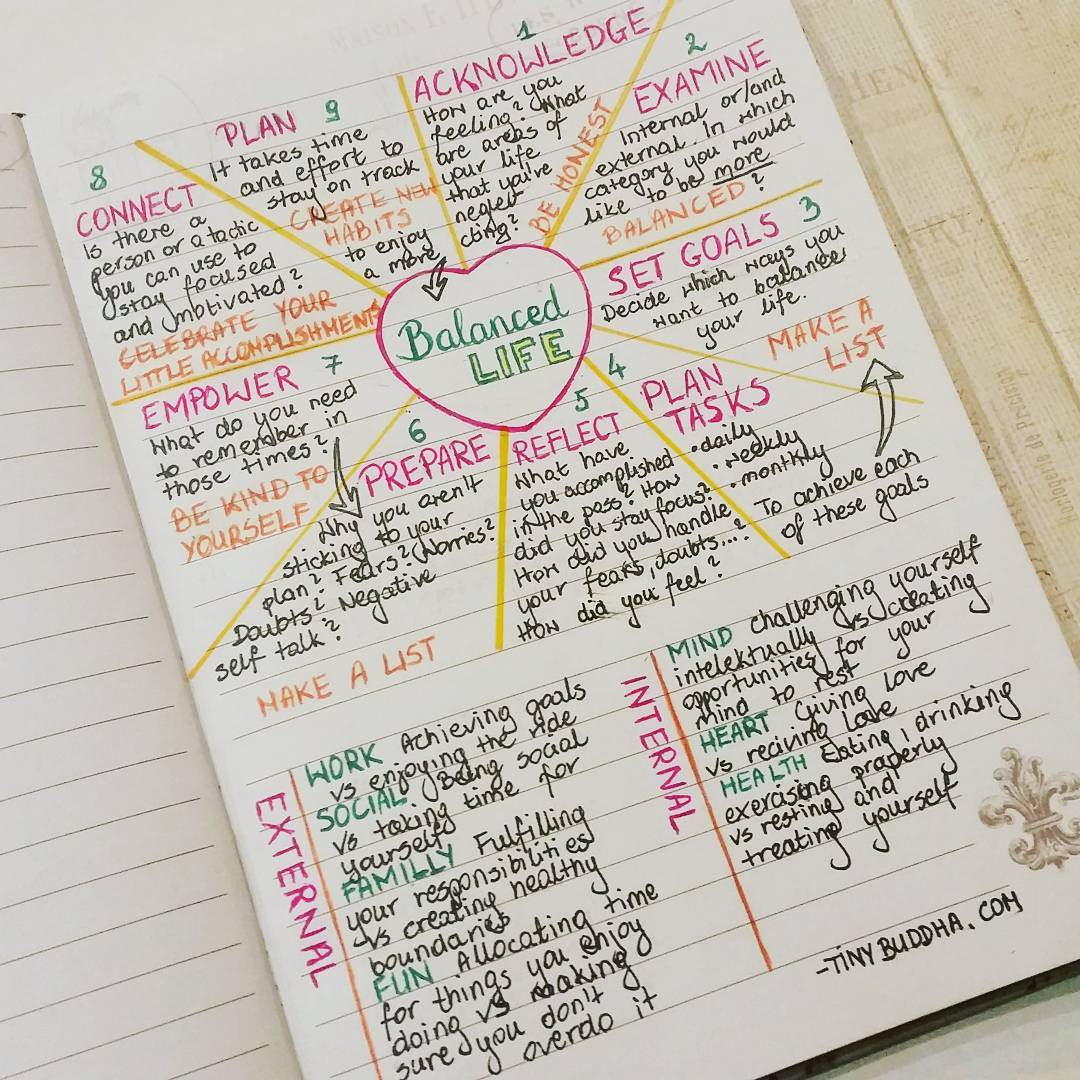 1
ACKNOWLEDGE
How are you
feeling? What
are areas of
your life
that you're
neglect
cting?
BE HONEST
2
EXAMINE
Internal or/and
external. In which
category you would
like to be more
BALANCED?
3
SET GOALS
Decide which ways you
want to balance
your life.
MAKE A
LIST
4
PLAN
TASKS
• daily
• weekly
• monthly
To achieve each
of these goals
5
REFLECT
What have
you accomplished
in the pass? How
did you stay focus?
How did you handle
your fears, doubts...?
How did you feel?
6
PREPARE
Why you aren't
sticking to your
plan? Fears? Worries?
Doubts? Negative
self talk?
MAKE A LIST
7
EMPOWER
What do you need
to remember in
those times?
BE KIND TO
YOURSELF
8
CONNECT
Is there a
person or a tactic
you can use to
stay focused
and motivated?
CELEBRATE YOUR
LITTLE ACCOMPLISHMENTS
9
PLAN
It takes time
and effort to
stay on track
CREATE NEW
HABITS
to enjoy
a more
Balanced
LIFE
EXTERNAL
WORK Achieving goals
vs enjoying the ride
SOCIAL Being social
vs taking time for
yourself
FAMILLY Fulfilling
your responsibilities
vs creating healthy
boundaries
FUN Allocating time
for things you enjoy
doing vs making
sure you don't
overdo it
INTERNAL
MIND challenging yourself
intelektually vs creating
opportunities for your
mind to rest
HEART Giving love
vs reciving love
HEALTH Eating, drinking
exercising properly
vs resting and
treating yourself
-TINYBUDDHA.COM